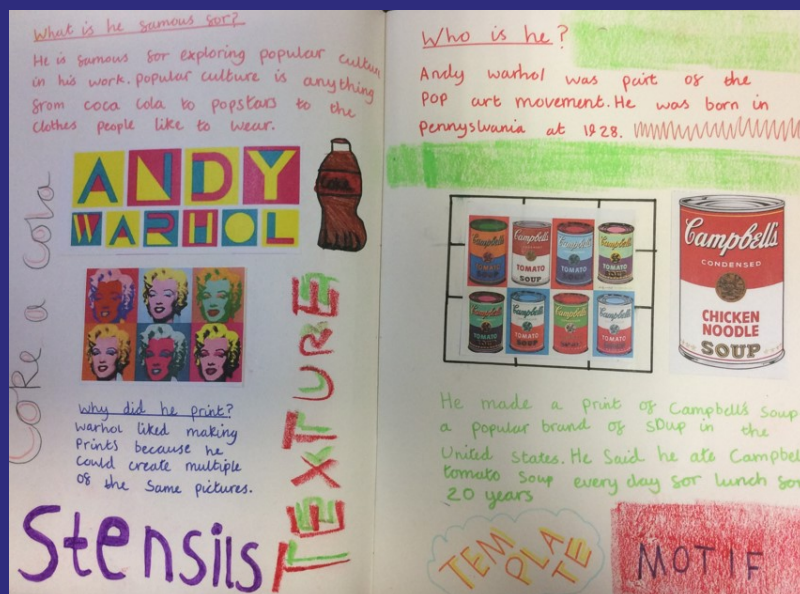 What is he samous sor?
He is samous sor exploring popular culture
in his work. popular culture is anything
srom coca cola to popstars to the
clothes people like to wear.
ANDY
WARHOL
Coke
Coke a Cola
TEXTURE
Why did he print?
Warhol liked making
Prints because he
Could create multiple
os the Same pictures.
Stensils
Who is he?
Andy warhol was part os the
Pop art movement. He was born in
Pennyslwania at 1928.
Campbell's
Campbell's
Campbell's
Campbell's
TOMATO
TOMATO
TOMATO
SOUP
SOUP
Campbell's
Campbell's
Campbell's
Campbell's
TOMATO
TOMATO
TOMATO
SOUP
Campbell's
CONDENSED
CHICKEN
NOODLE
SOUP
He made a print os Campbells Soup
a popular brand os soup in the
United States. He Said he ate Campbel
tomato Soup every day sor lunch sor
20 years
TEM
PLA
TE
MOTIF